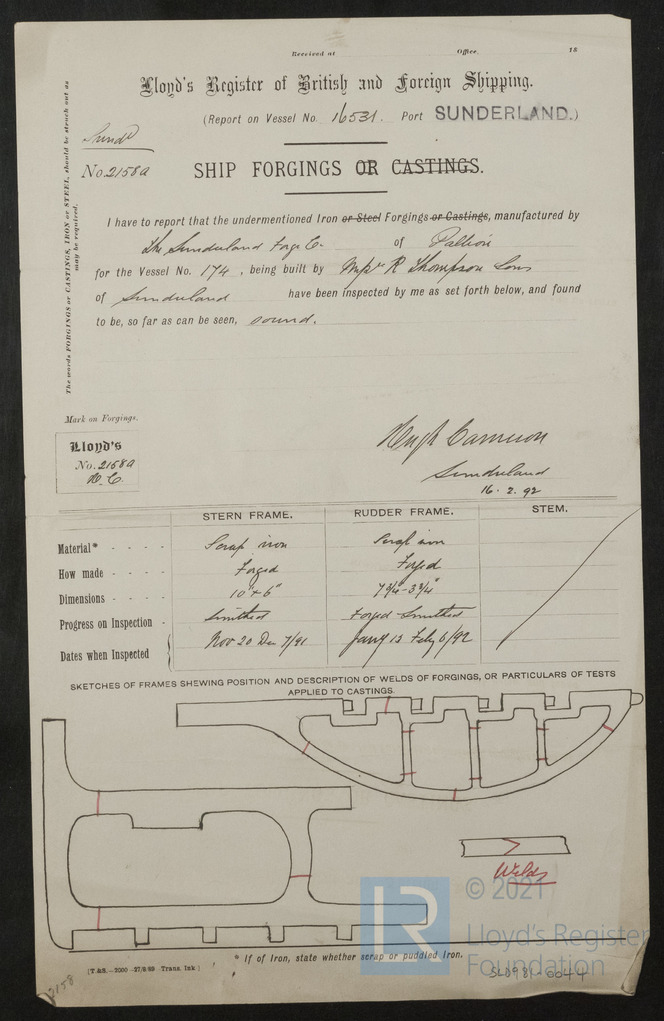 Received at Office. 18
Lloyd's Register of British and Foreign Shipping.
(Report on Vessel No. 16531. Port SUNDERLAND.)
Sundd
No. 2158a
SHIP FORGINGS OR CASTINGS.
The words FORGINGS or CASTINGS, IRON or STEEL, should be struck out as
may be required.
I have to report that the undermentioned Iron or Steel Forgings or Castings, manufactured by
The Sunderland Forge Co. of Pallion
for the Vessel No. 174, being built by Messrs R Thompson Sons
of Sunderland have been inspected by me as set forth below, and found
to be, so far as can be seen, sound.
Mark on Forgings.
Lloyd's
No. 2158a
H. C.
Hugh Cameron
Sunderland
16. 2. 92
STERN FRAME. RUDDER FRAME. STEM.
Material* - - - - Scrap iron Scrap iron
How made - - - - Forged Forged
Dimensions - - - - 10" x 6" 7¾-3¾"
Progress on Inspection - Smithed Forged Smithed
Dates when Inspected Nov 20 Dec 7/91 Jany 13 Feby 6/92
SKETCHES OF FRAMES SHEWING POSITION AND DESCRIPTION OF WELDS OF FORGINGS, OR PARTICULARS OF TESTS
APPLIED TO CASTINGS.
Welds
© 2021
LR
Lloyd's Register
Foundation
* If of Iron, state whether scrap or puddled Iron.
[T & S.—2000—27/8/89 Trans. Ink.]
SLD981-0044
2158